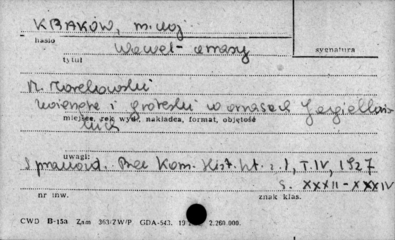 KRAKÓW, m. woj
hasło
Wawel - arrasy
sygnatura
tytuł
M. Morelowski
Wnętrze i groteski w arrasach Jagielloń-
miejsce, rok wyd., nakładca, format, objętość
skich
uwagi:
Sprawozd. Prac Kom. Hist. Szt. : 1, T. IV, 1927
s. XXXII-XXXIV
nr inw.
znak klas.
CWD B-15a Zam 363/ZW/P. GDA-543. 2.260.000.